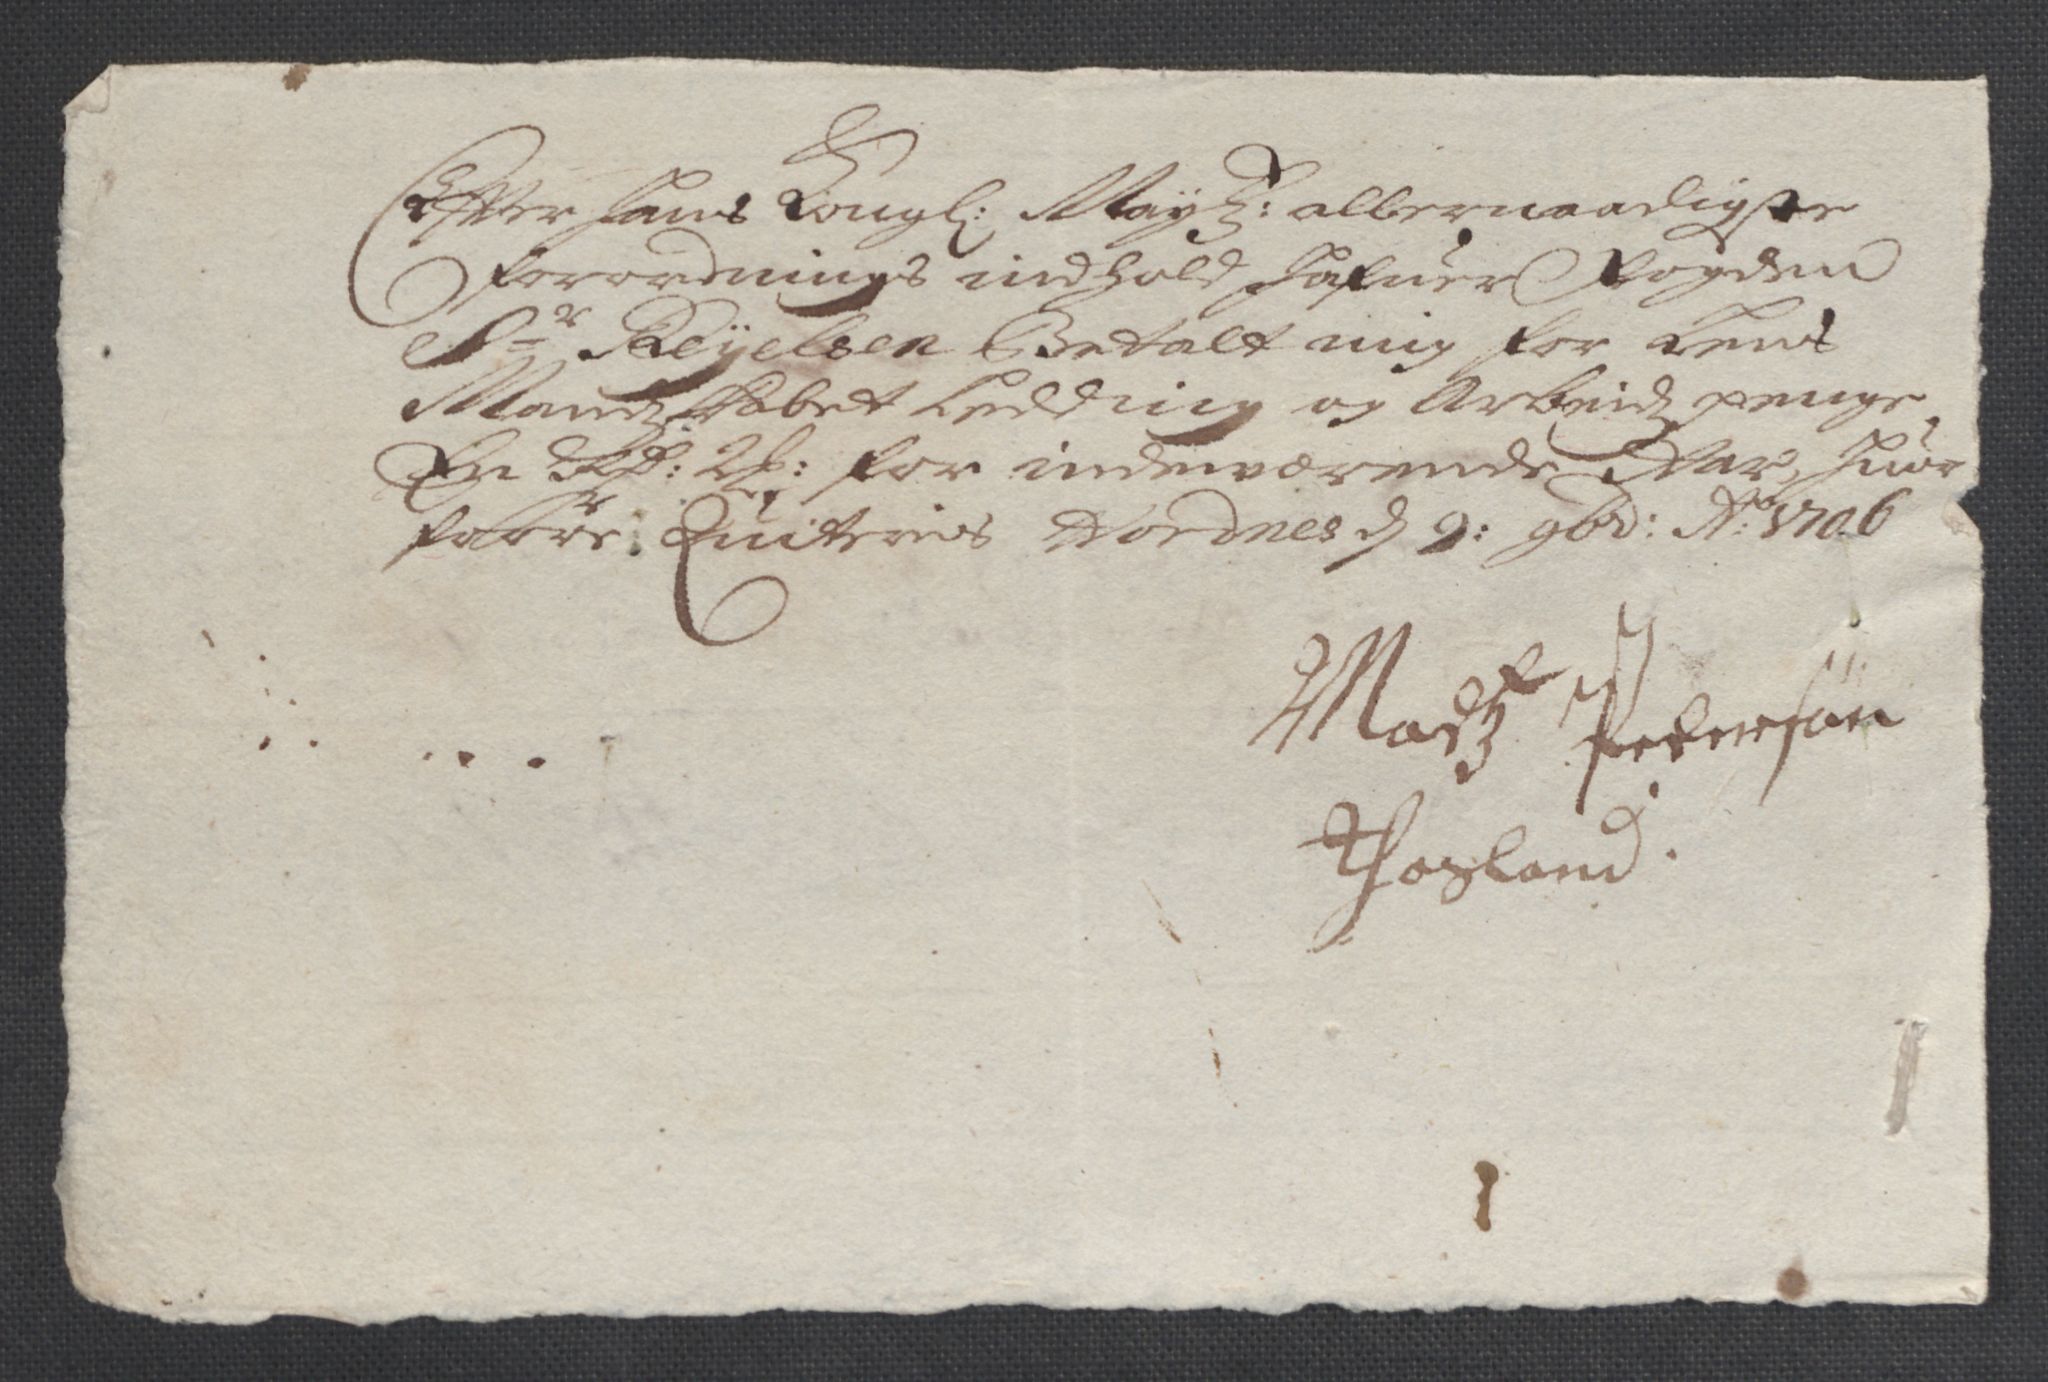 Effter hans Kongl: Mayts: allernaadigste
forordnings indhold hafuer fogden
Sr Reyelsen Betalt mig for Lens
Mandskabet Ledding og Arbeids penge
En Rdr: 2 s: for indeværende Aar, huor
faare Quiteris Nordnes d 9: 9bd: Ao: 1706
Madtz Peterssøn
Hogland.